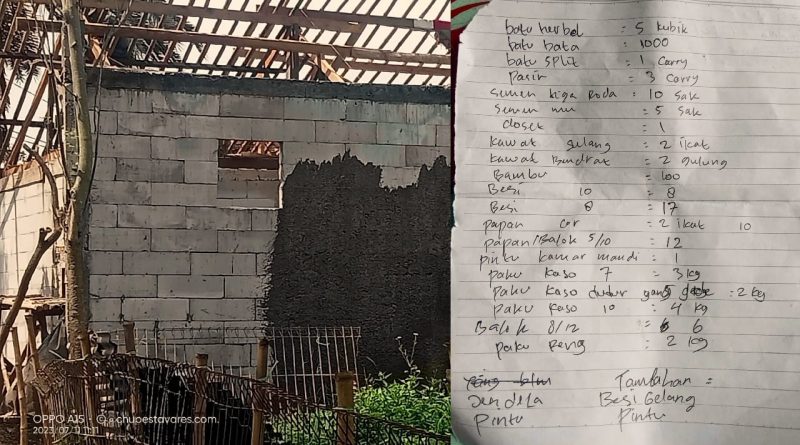 OPPO A15 - © chupestavares.com
2023/07/11 11:11
batu herbel = 5 kubik
batu bata : 1000
batu split = 1 carry
Pasir = 3 carry
semen tiga roda : 10 sak
semen mu = 5 sak
closet = 1
kawat gelang = 2 ikat
kawat Bendrat = 2 gulung
Bambu = 100
Besi 10 = 8
Besi 8 = 17
papan cor = 2 ikat 10
papan/Balok 5/10 = 12
pintu kamar mandi = 1
paku kaso 7 = 3 kg
paku kaso dudur yang gede = 2 kg
paku kaso 10 = 4 kg
Balok 8/12 = 6
paku reng = 2 kg
yang blm Tambahan =
Jendela Besi Gelang
pintu pintu